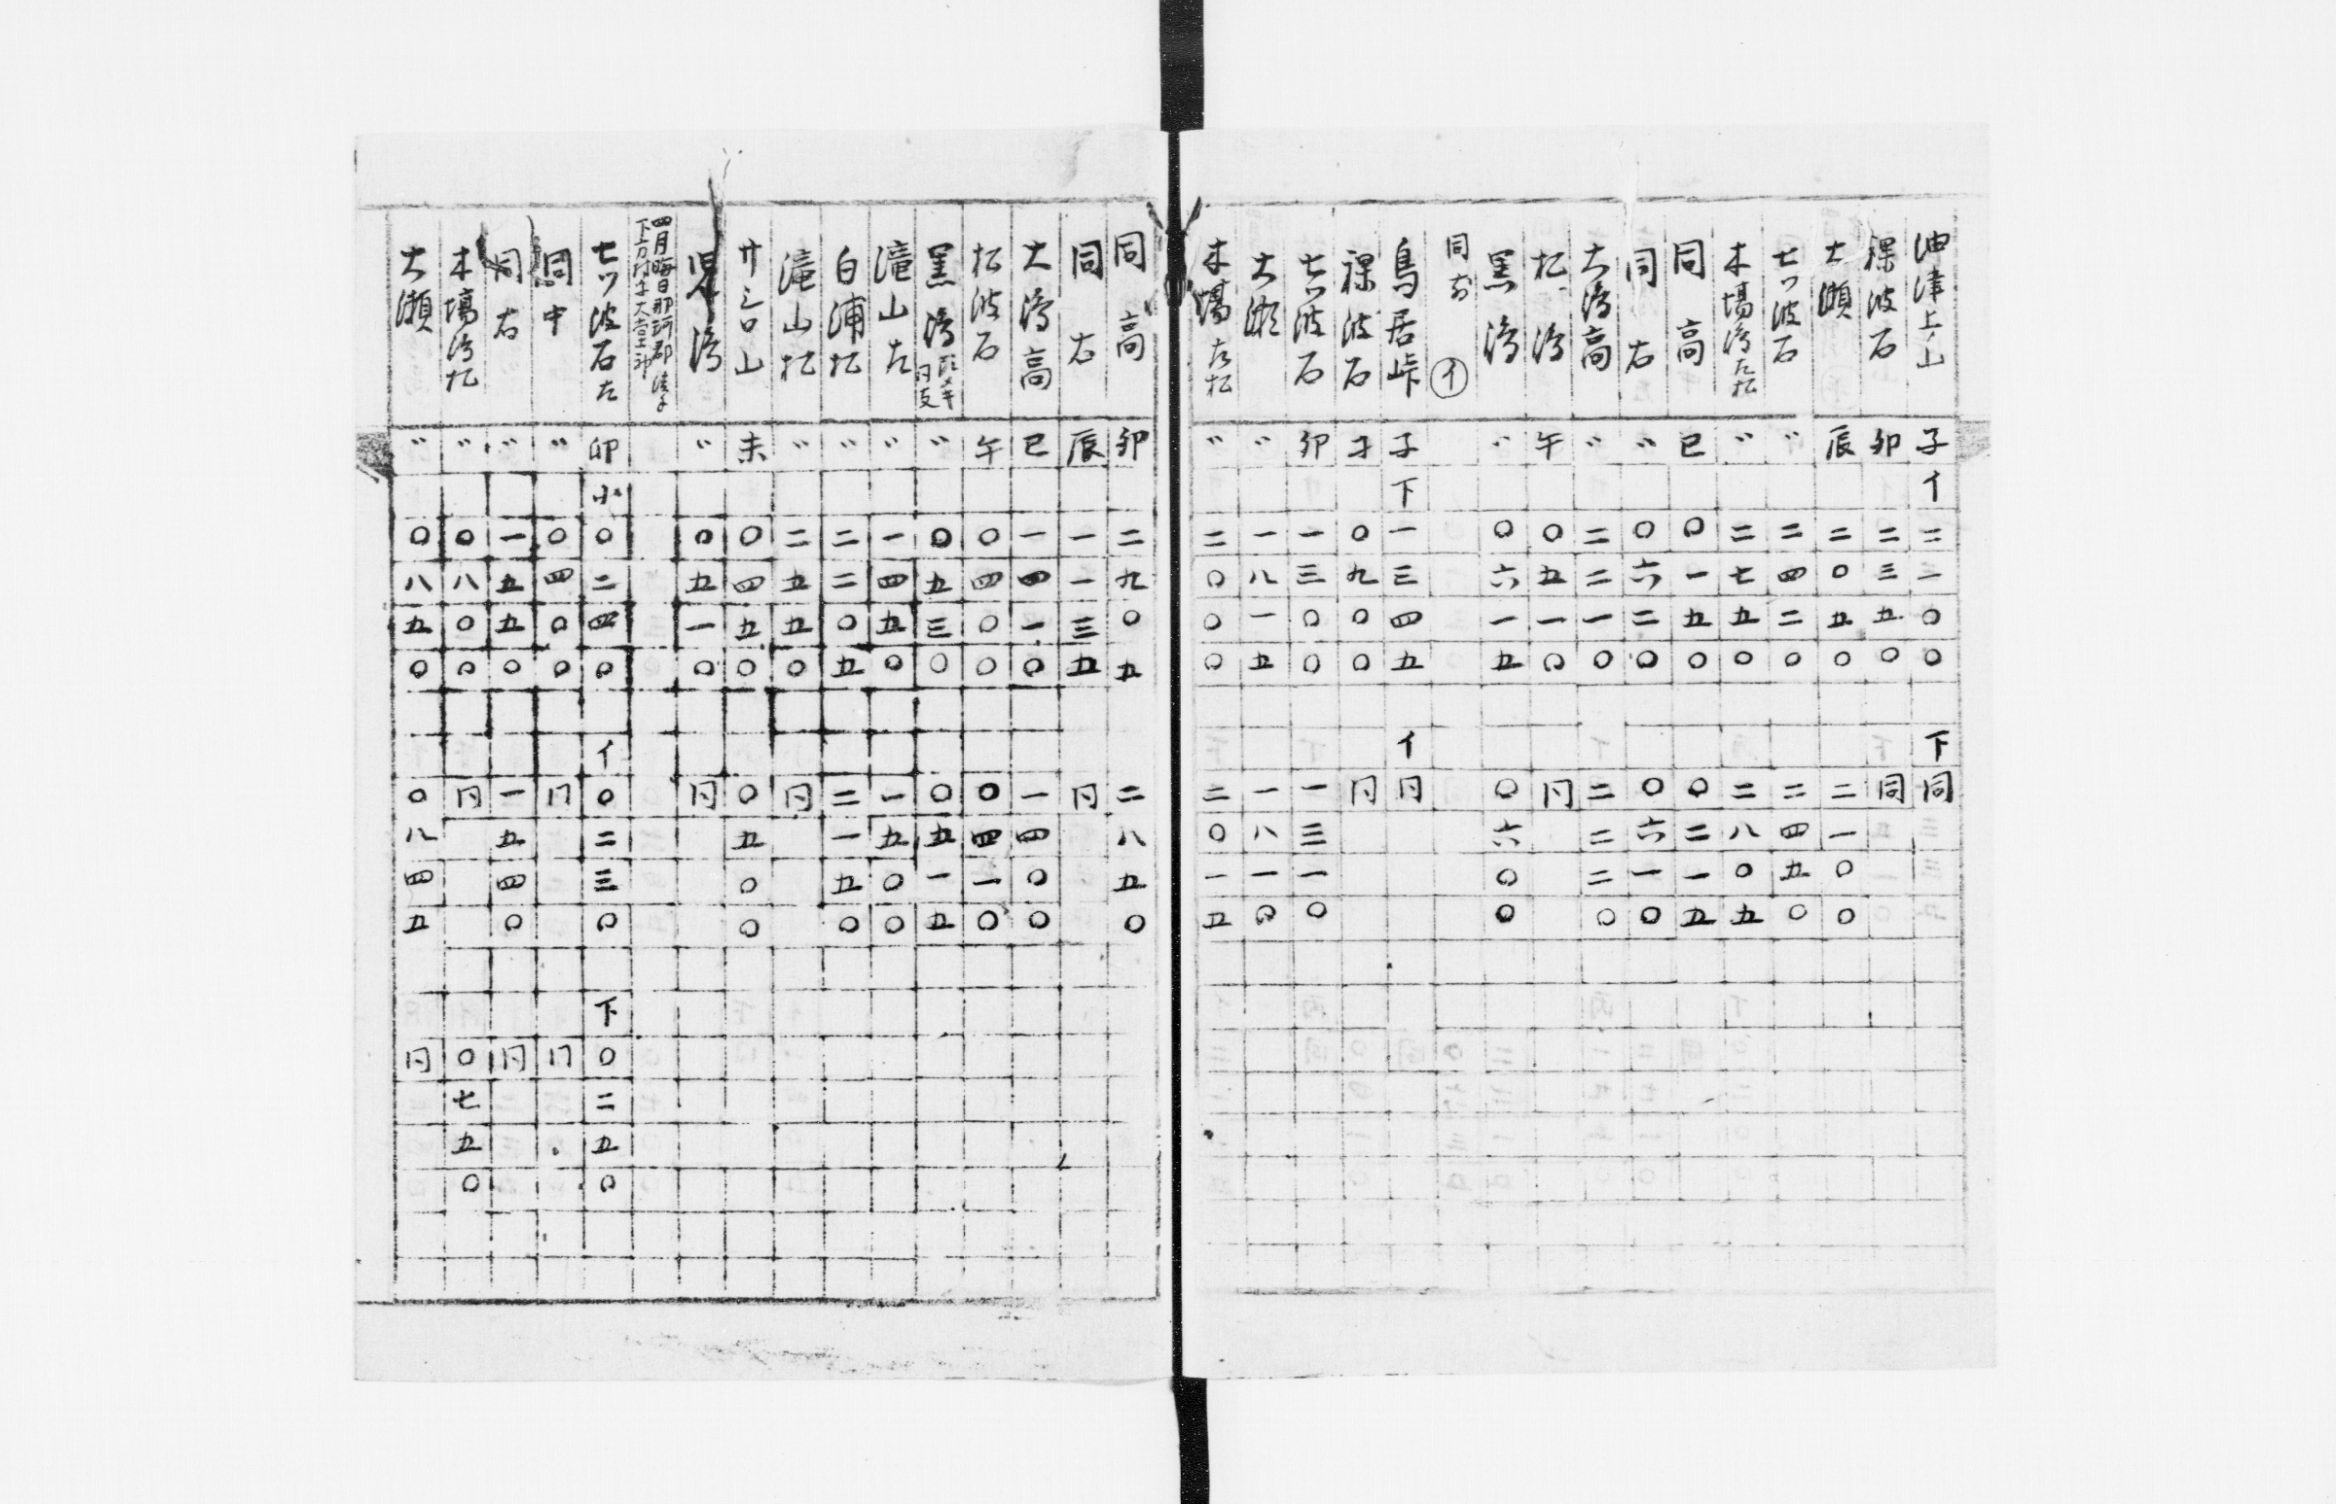 油津上ノ山 子 イ 二一〇〇 下 同
裸波石 卯 二三五〇 同
大瀬 辰 二〇五〇 二一〇〇
七ツ波石 〃 二四二〇 二四五〇
木場湾左松 〃 二七五〇 二八〇五
同高 巳 〇一五〇 〇二一五
同右 〃 〇六二〇 〇六一〇
大湾高 〃 二二一〇 二二二〇
松湾 午 〇五一〇 同
黒湾 〃 〇六一五 〇六〇〇
同前 イ
鳥居峠 子 下 一三四五 イ 同
裸波石 才 〇九〇〇 同
七ツ波石 卯 一三〇〇 一三一〇
大瀬 〃 一八一五 一八一〇
木場左松 〃 二〇〇〇 二〇一五
同高 卯 二九〇五 二八五〇
同右 辰 一一三五 同
大湾高 巳 一四一〇 一四〇〇
松波石 午 〇四〇〇 〇四一〇
黒湾 〃 〇五三〇 〇五一五
滝山左 〃 一四五〇 一五〇〇
白浦松 〃 二二〇五 二一五〇
滝山松 〃 二五五〇 同
廿三口山 未 〇四五〇 〇五〇〇
児湾 〃 〇五一〇 同
四月晦日那珂郡
下方村字大堂津
七ツ波石左 卯 小 〇二四〇 イ 〇二三〇 下 〇二五〇
同中 〃 〇四〇〇 同 同
同右 〃 一五五〇 一五四〇 同
木場湾松 〃 〇八〇〇 同 〇七五〇
大瀬 〃 〇八五〇 〇八四五 同